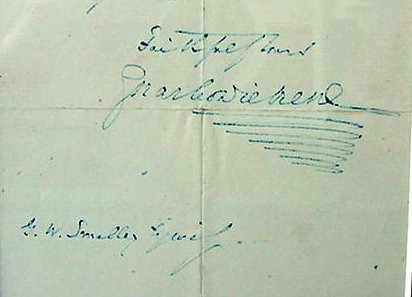 Faithfully Yours
Charles Dickens
G. W. Smalley Esquire